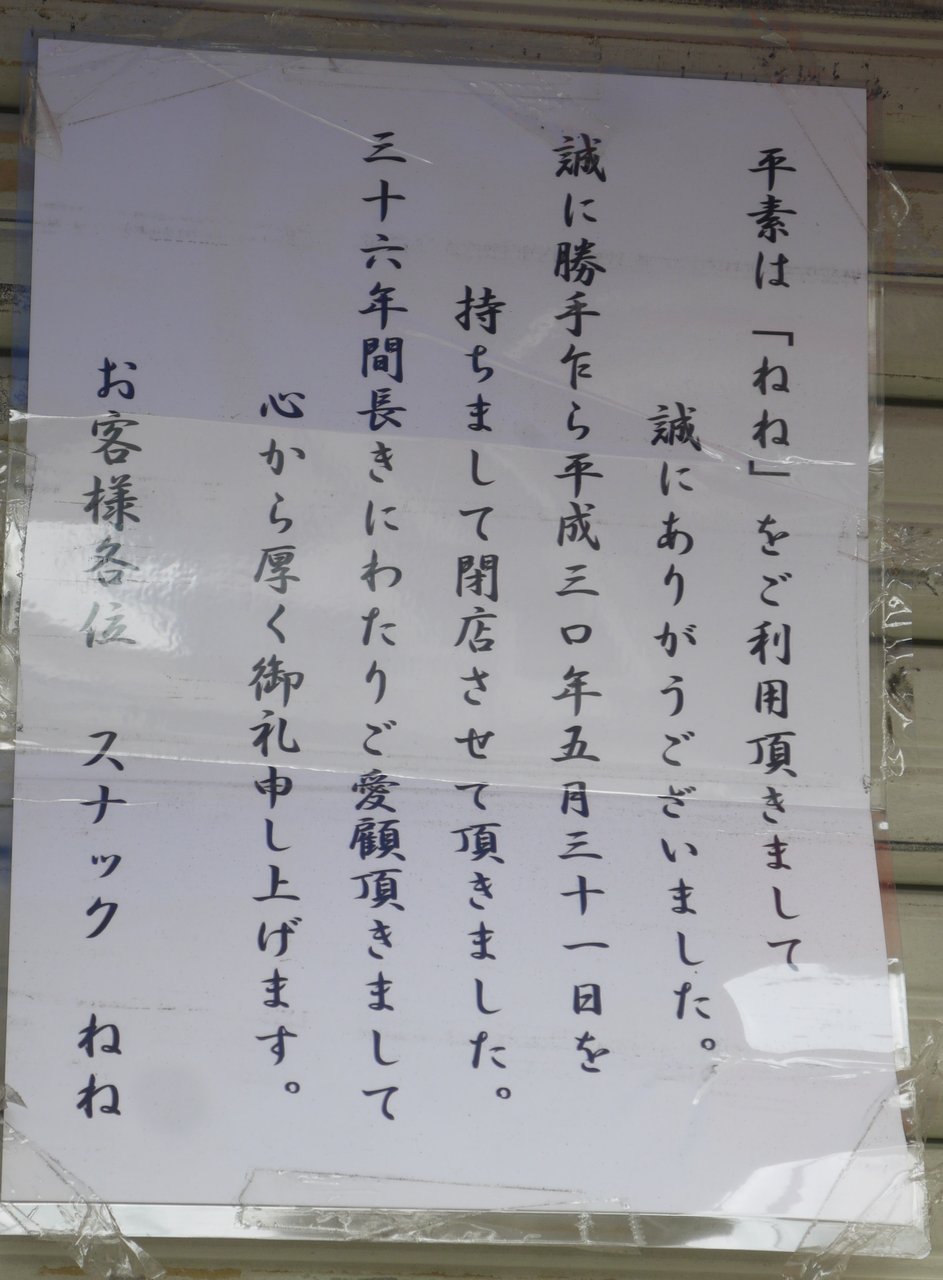 平素は「ねね」をご利用頂きまして
誠にありがうございました。
誠に勝手乍ら平成三〇年五月三十一日を
持ちまして閉店させて頂きました。
三十六年間長きにわたりご愛顧頂きまして
心から厚く御礼申し上げます。
お客様各位 スナック ねね